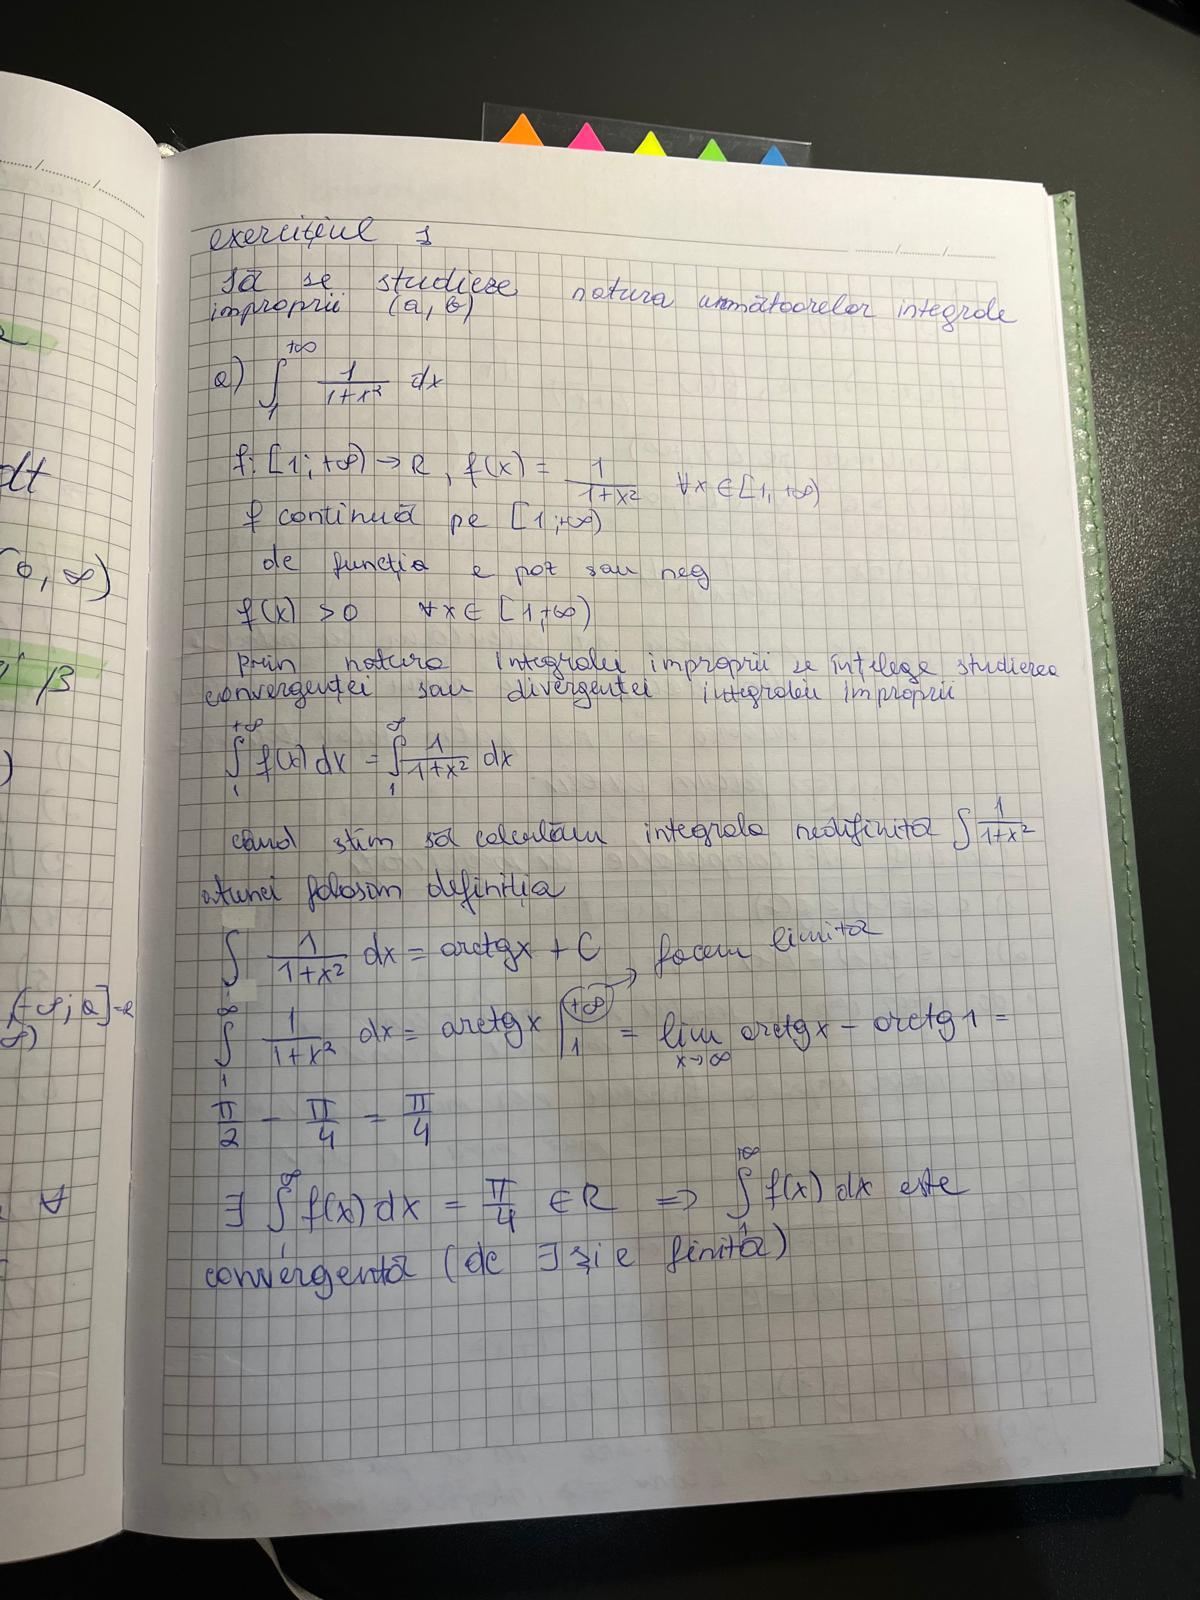 dt
(0, ∞)
β
exercițiul 1
să se studieze natura următoarelor integrale
improprii (a, b)
a) ∫₁^{+∞} 1/(1+x²) dx
f: [1; +∞) → R, f(x) = 1/(1+x²) ∀x ∈ [1, +∞)
f continuă pe [1; +∞)
de funcția e poz sau neg
f(x) > 0 ∀x ∈ [1, +∞)
prin natura integralei improprii se înțelege studierea
convergenței sau divergenței integralei improprii
∫₁^{+∞} f(x) dx = ∫₁^{∞} 1/(1+x²) dx
când știm să calculăm integrala nedifinită ∫ 1/(1+x²)
atunci folosim definiția
∫ 1/(1+x²) dx = arctgx + C facem limita
∫₁^{∞} 1/(1+x²) dx = arctgx |₁^{+∞} = lim_{x→∞} arctgx − arctg1 =
π/2 − π/4 = π/4
∃ ∫₁^{∞} f(x) dx = π/4 ∈ R ⇒ ∫₁^{+∞} f(x) dx este
convergentă (dc ∃ și e finită)